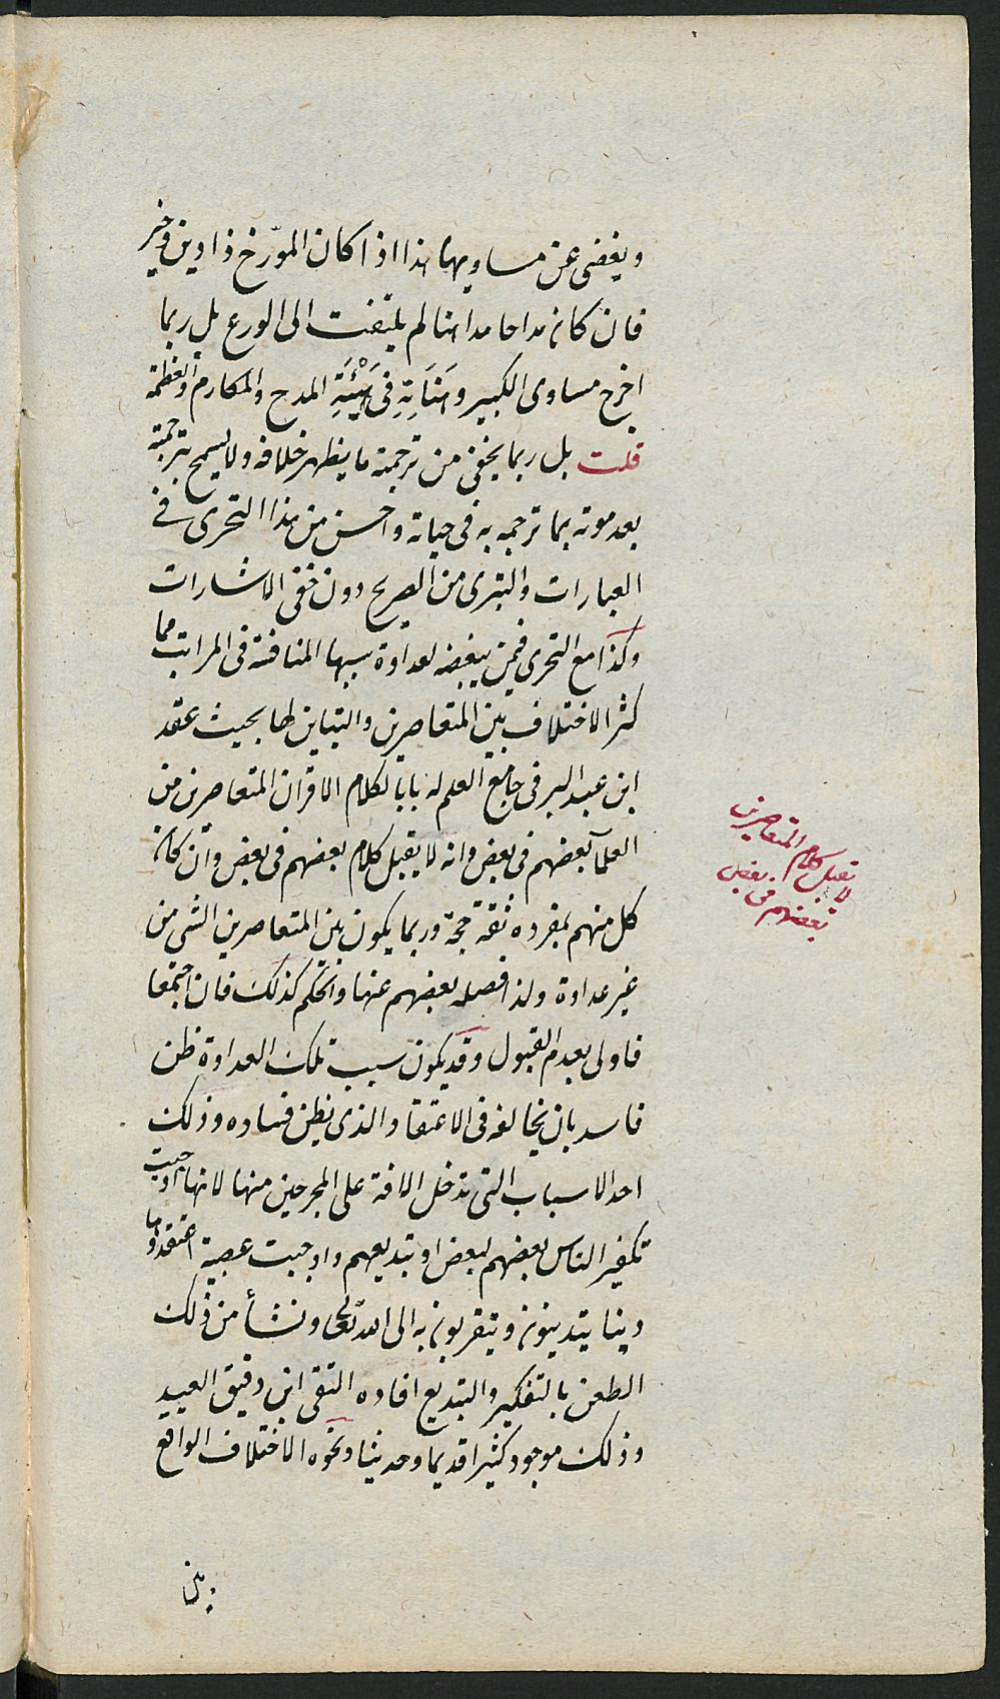 ويغضى عن مساويهما هذا اذا كان المؤرخ ذا دين وخير
فان كان مداحا مداهنا لم يلتفت الى الورع بل ربما
اخرج مساوى الكبير وهَنَاتِهِ فى هَيْئَةِ المدح والمكارم والعظمة
قلت بل ربما يخفى من ترجمة ما يظهر خلافه ولا يسمح بترجمته
بعد موته بما ترجمه به فى حياته واحسن من هذا التحرى فى
العبارات والتبرى من الصريح دون خفى الاشارات
وكذا مع التحرى فيمن يبغضه لعداوة سببها المنافسة فى المراتب مما
كثر الاختلاف بين المتعاصرين والتباين لها بحيث عقد
ابن عبد البر فى جامع العلم له بابا لكلام الاقران المتعاصرين من
العلمآ بعضهم فى بعض وانه لا يقبل كلام بعضهم فى بعض وان كان
كل منهم بمفرده ثقة حجة وربما يكون بين المتعاصرين الشى من
غير عداوة ولذا فصله بعضهم عنها والحكم كذلك فان اجتمعا
فاولى بعدم القبول وقد يكون سبب تلك العداوة ظن
فاسد بان يخالفه فى الاعتقاد الذى يظن فساده وذلك
احد الاسباب التى تدخل الافة على المجرحين منها لانها اوجبت
تكفير الناس بعضهم لبعض او تبديعهم واوجبت عصبية اعتقدوها
دينا يتدينون ويتقربون به الى الله تعالى ونشأ من ذلك
الطعن بالتفكير والتبديع افاده التقى ابن دقيق العيد
وذلك موجود كثيرا قديما وحديثا ونحوه الاختلاف الواقع
بين
لا تقبل كلام المتعاصرين
بعضهم فى بعض